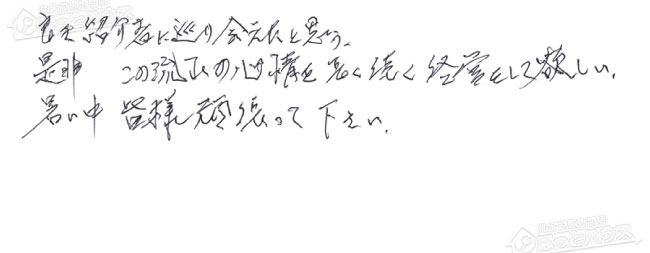 良き紹介者に巡り会えたと思う、
是非 この流れの心構を長く続く経営をして欲しい。
暑い中 皆様 頑張って下さい。